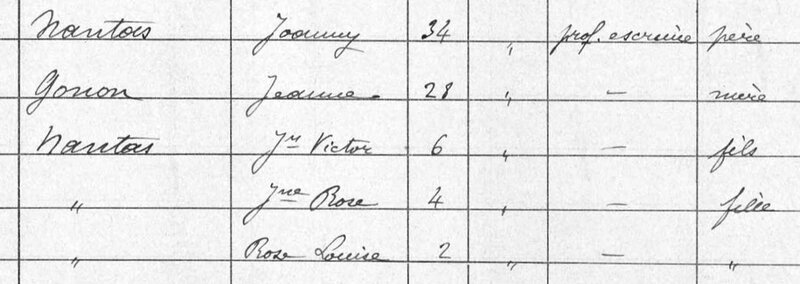 Nantas Joanny 34 " prof. escrime père
Gonon Jeanne 28 " — mère
Nantas Jn Victor 6 " — fils
" Jne Rose 4 " — fille
" Rose Louise 2 " — "